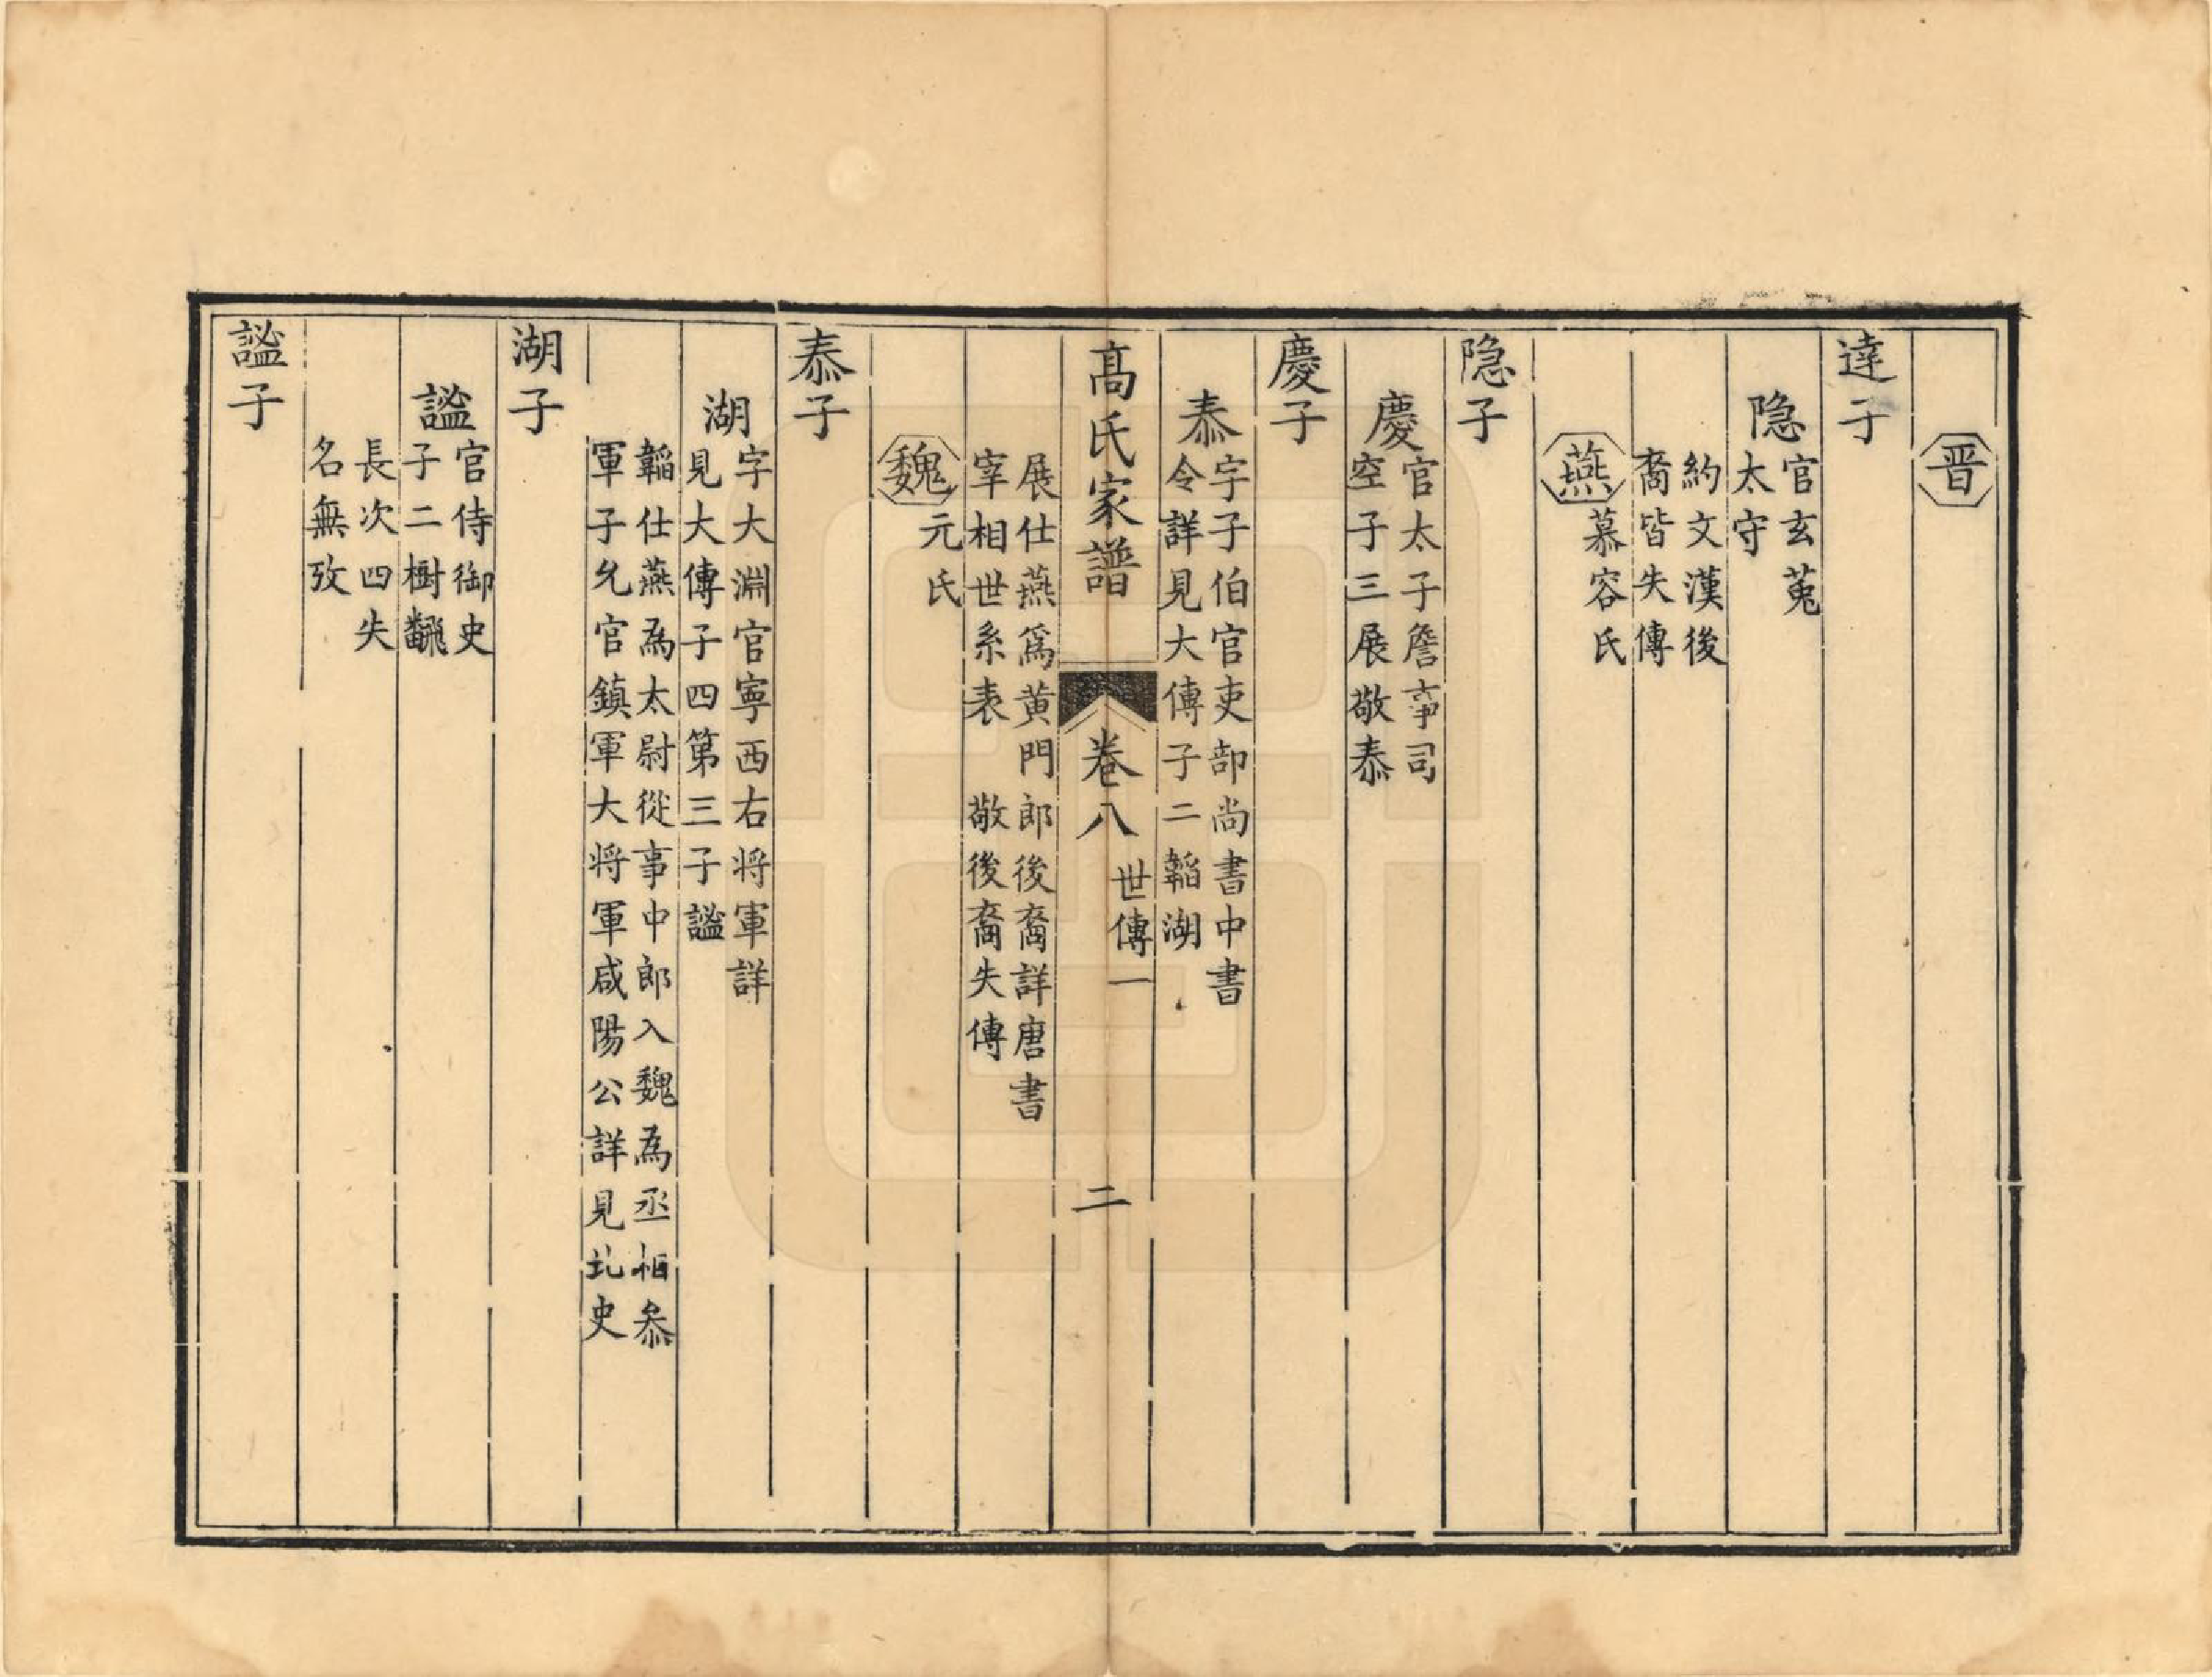 晋
達子
隐
官玄菟
太守
約文漢後
裔皆失傳
燕
慕容氏
隐子
慶
官太子詹事司
空子三展敬泰
慶子
泰
字子伯官吏部尚書中書
令詳見大傳子二韜湖
髙氏家譜
卷八
世傳一
二
展仕燕爲黄門郎後裔詳唐書
宰相世系表　敬後裔失傳
魏
元氏
泰子
湖
字大淵官寧西右将軍詳
見大傳子四第三子謐
韜仕燕為太尉從事中郎入魏為丞相叅
軍子允官鎮軍大将軍咸陽公詳見北史
湖子
謐
官侍御史
子二樹飜
長次四失
名無攷
謐子